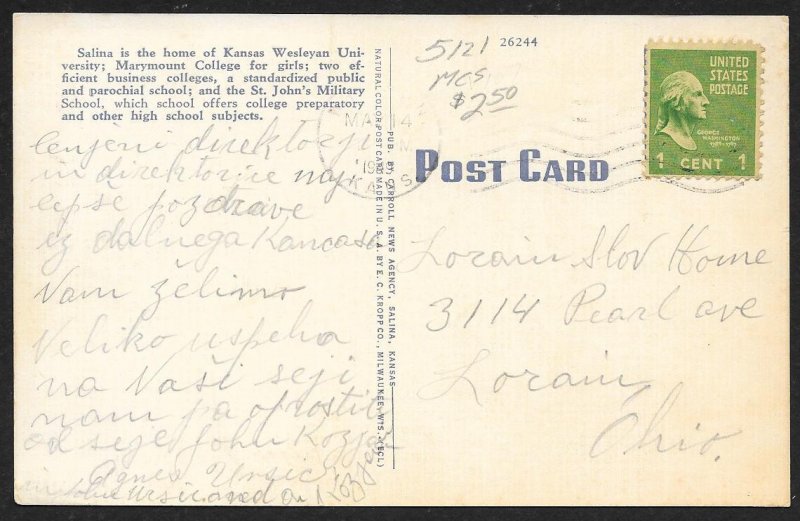 Salina is the home of Kansas Wesleyan Uni-
versity; Marymount College for girls; two ef-
ficient business colleges, a standardized public
and parochial school; and the St. John's Military
School, which school offers college preparatory
and other high school subjects.
cenjeni direktorji
in direktorice naj
lepše pozdrave
iz dalnega Kancasa
Vam želimo
Veliko uspeha
na Vaši seji
nam pa oprostite
od seje John Kozjan
Agnes Ursic
John Ursic and A. Kozjan
NATURAL COLOR POST CARD MADE IN U. S. A. BY E. C. KROPP CO., MILWAUKEE, WIS. (ECL)
PUB. BY CARROLL NEWS AGENCY, SALINA, KANSAS
26244
5121
MCS
$2.50
POST CARD
UNITED
STATES
POSTAGE
GEORGE
WASHINGTON
1789-1797
1 CENT 1
Lorain Slov Home
3114 Pearl ave
Lorain,
Ohio.